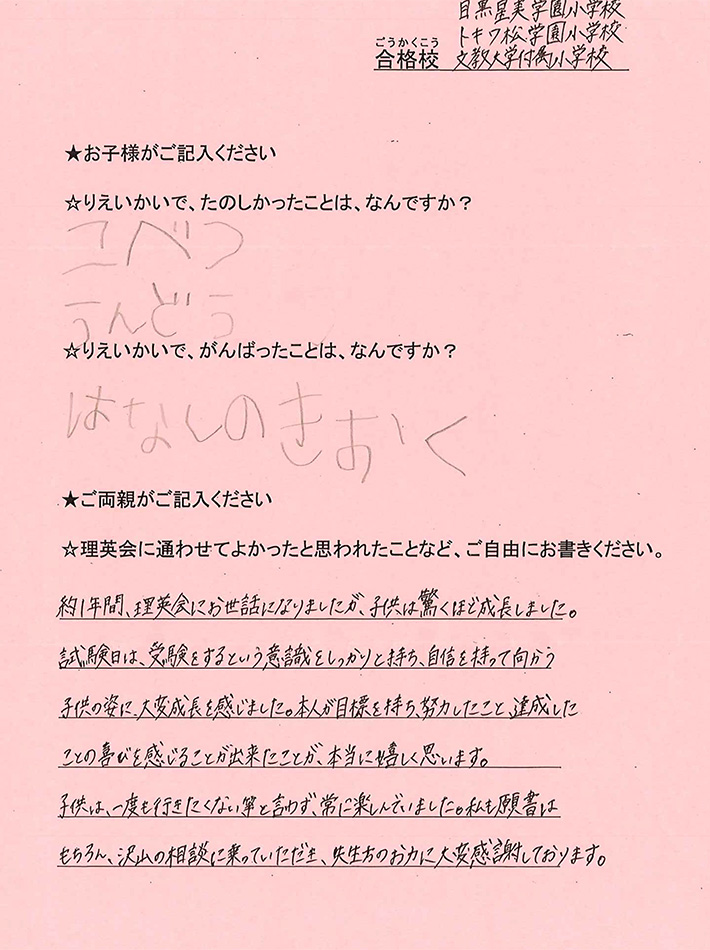 目黒星美学園小学校
トキワ松学園小学校
ごうかくこう
合格校 文教大学付属小学校
★お子様がご記入ください
☆りえいかいで、たのしかったことは、なんですか？
こべつ
うんどう
☆りえいかいで、がんばったことは、なんですか？
はなしのきおく
★ご両親がご記入ください
☆理英会に通わせてよかったと思われたことなど、ご自由にお書きください。
約1年間、理英会にお世話になりましたが、子供は驚くほど成長しました。
試験日は、受験をするという意識をしっかりと持ち、自信を持って向かう
子供の姿に、大変成長を感じました。本人が目標を持ち、努力したこと、達成した
ことの喜びを感じることが出来たことが、本当に嬉しく思います。
子供は、一度も行きたくない等と言わず、常に楽しんでいました。私も願書は
もちろん、沢山の相談に乗っていただき、先生方のお力に大変感謝しております。